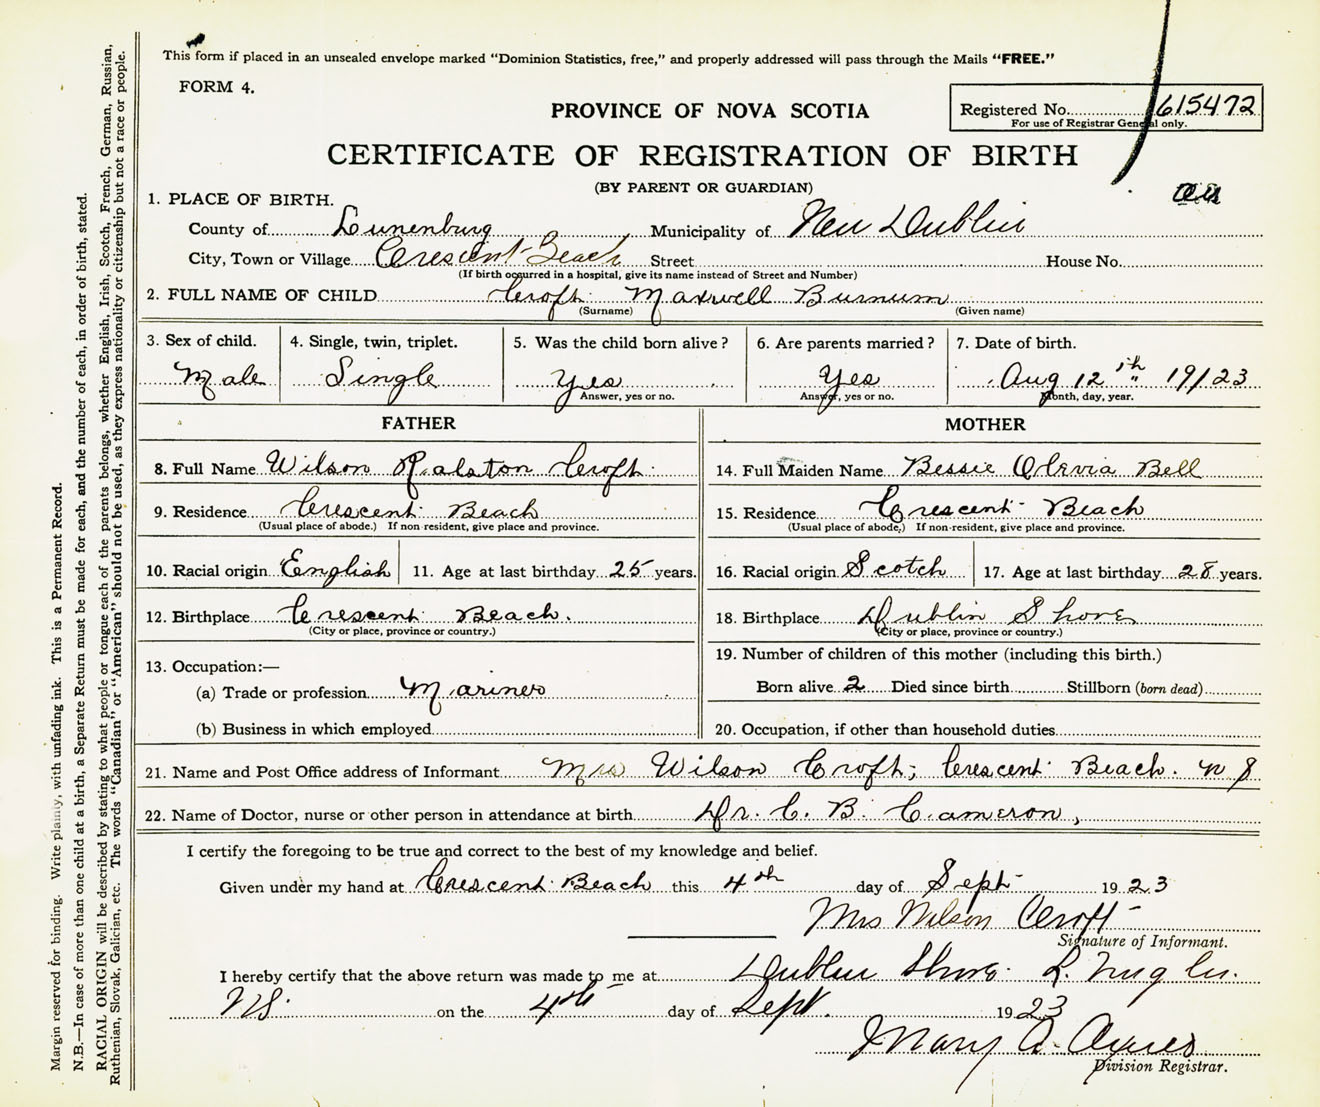 This form if placed in an unsealed envelope marked “Dominion Statistics, free,” and properly addressed will pass through the Mails “FREE.”
FORM 4.
PROVINCE OF NOVA SCOTIA
Registered No. 615472
For use of Registrar General only.
CERTIFICATE OF REGISTRATION OF BIRTH
(BY PARENT OR GUARDIAN)
1. PLACE OF BIRTH.
County of Lunenburg Municipality of New Dublin
City, Town or Village Crescent Beach Street House No.
(If birth occurred in a hospital, give its name instead of Street and Number)
2. FULL NAME OF CHILD Croft Maxwell Burnum
(Surname) (Given name)
3. Sex of child. 4. Single, twin, triplet. 5. Was the child born alive ? 6. Are parents married ? 7. Date of birth.
Male Single Yes Yes Aug 12th 19/23
Answer, yes or no. Answer, yes or no. Month, day, year.
FATHER MOTHER
8. Full Name Wilson Ralston Croft 14. Full Maiden Name Bessie Olevia Bell
9. Residence Crescent Beach 15. Residence Crescent Beach
(Usual place of abode.) If non-resident, give place and province. (Usual place of abode,) If non-resident, give place and province.
10. Racial origin English 11. Age at last birthday 25 years. 16. Racial origin Scotch 17. Age at last birthday 28 years.
12. Birthplace Crescent Beach. 18. Birthplace Dublin Shore
(City or place, province or country.) (City or place, province or country.)
13. Occupation:— 19. Number of children of this mother (including this birth.)
(a) Trade or profession Mariner Born alive 2 Died since birth Stillborn (born dead)
(b) Business in which employed 20. Occupation, if other than household duties
21. Name and Post Office address of Informant Mrs Wilson Croft, Crescent Beach. N S
22. Name of Doctor, nurse or other person in attendance at birth Dr. C. B. Cameron,
I certify the foregoing to be true and correct to the best of my knowledge and belief.
Given under my hand at Crescent Beach this 4th day of Sept 1923
Mrs Wilson Croft
Signature of Informant.
I hereby certify that the above return was made to me at Dublin Shore
NS. on the 4th day of Sept. 1923
Mary A.
Division Registrar.
Margin reserved for binding. Write plainly, with unfading ink. This is a Permanent Record.
N.B.—In case of more than one child at a birth, a Separate Return must be made for each, and the number of each, in order of birth, stated.
RACIAL ORIGIN will be described by stating to what people or tongue each of the parents belongs, whether English, Irish, Scotch, French, German, Russian,
Ruthenian, Slovak, Galician, etc. The words “Canadian” or “American” should not be used, as they express nationality or citizenship but not a race or people.